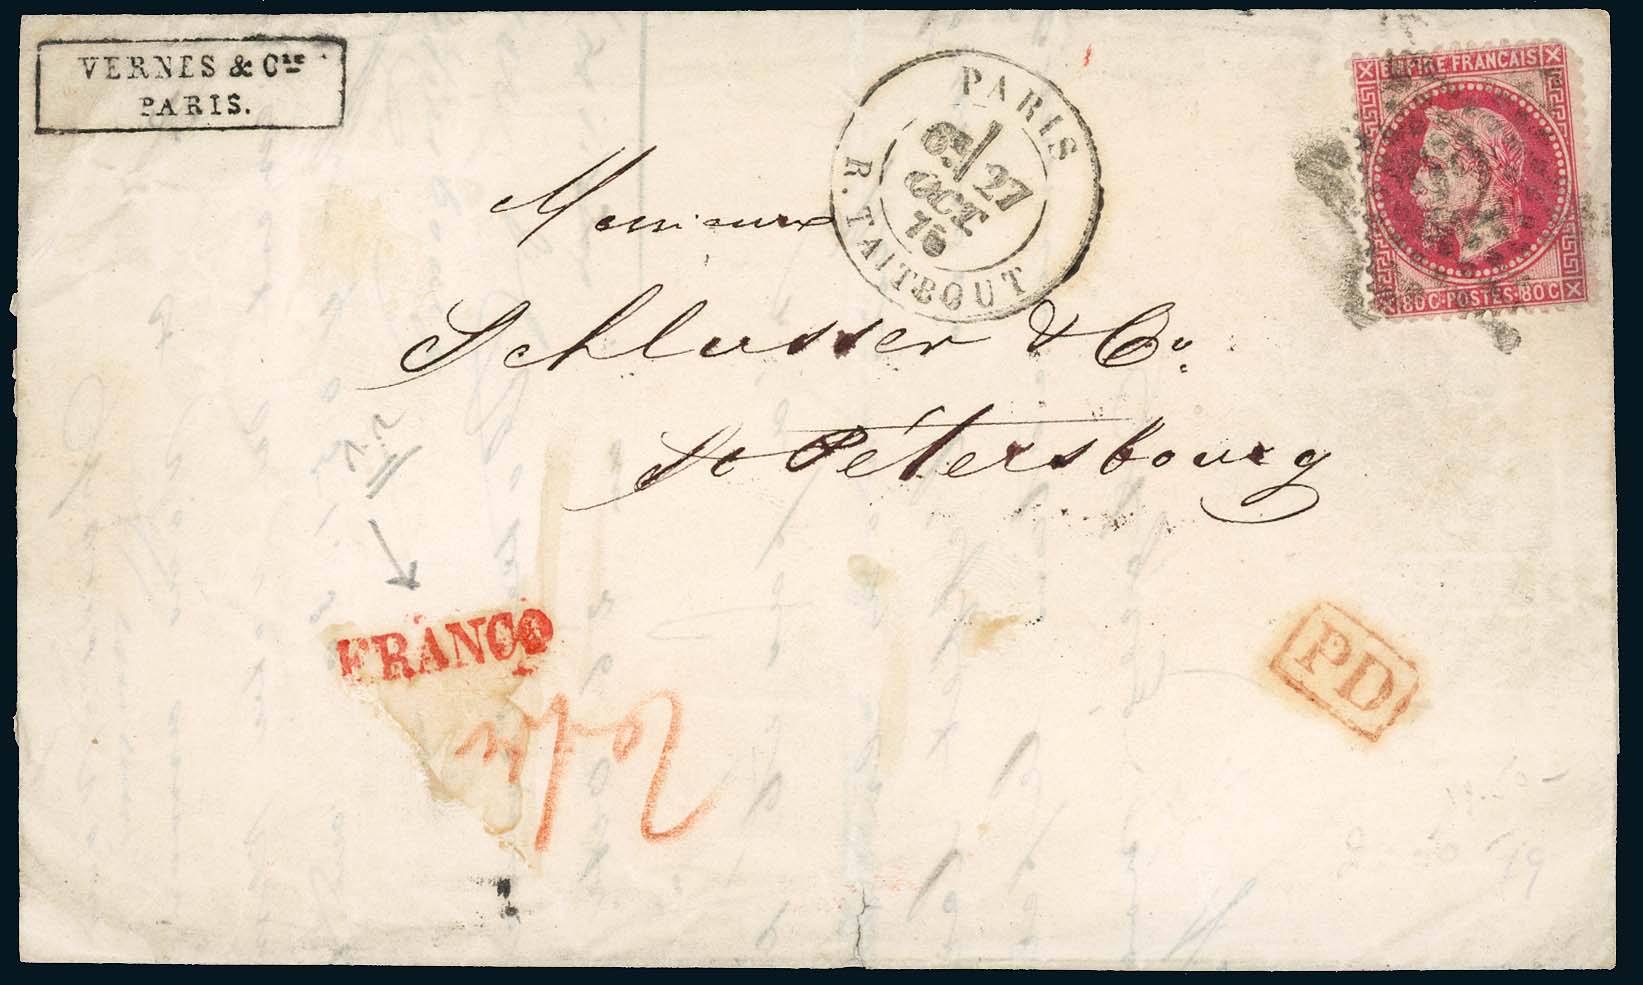 VERNES & Cie
PARIS.
EMPIRE FRANCAIS
80 C · POSTES · 80 C
PARIS
27
OCT.
70
R. TAITBOUT
Messieurs
Schlusser & Co.
St Pétersbourg
FRANCO
PD